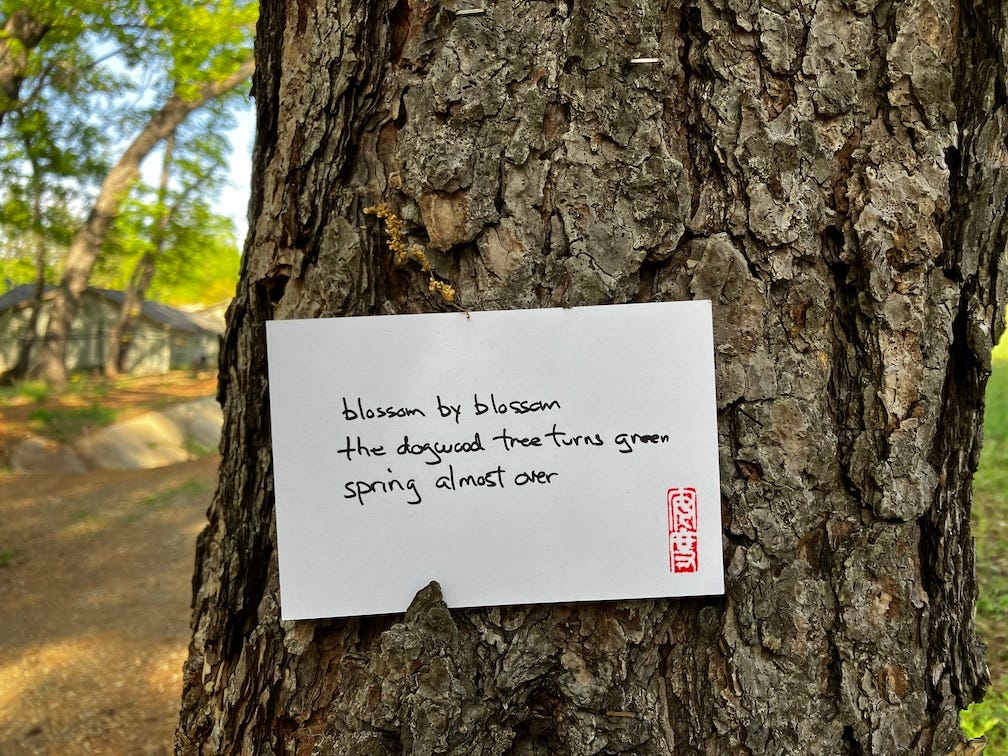 blossom by blossom
the dogwood tree turns green
spring almost over